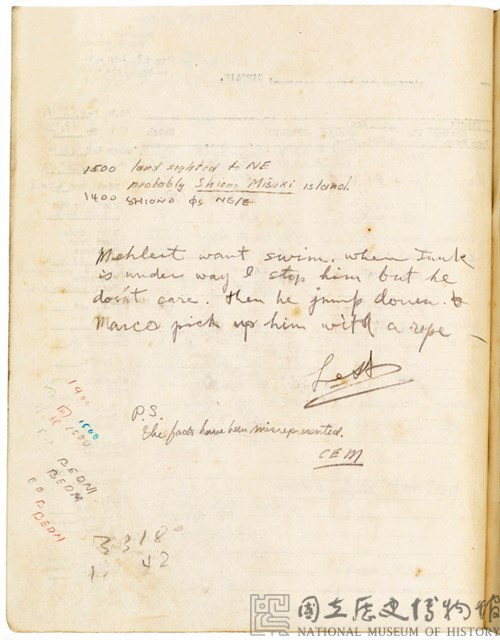 1500 land sighted to NE
probably Shiono Misaki island.
1400 SHIONO NE/E
Mehlert want swim, when Junk
is under way I stop him but he
dosn't care. then he jump down.
Marco pick up him with a rope
P.S.
The facts have been misrepresented.
CEM
1400
1500
1500
BEDNI
BEDM
BEDM
3318°
42
國立歷史博物館
NATIONAL MUSEUM OF HISTORY